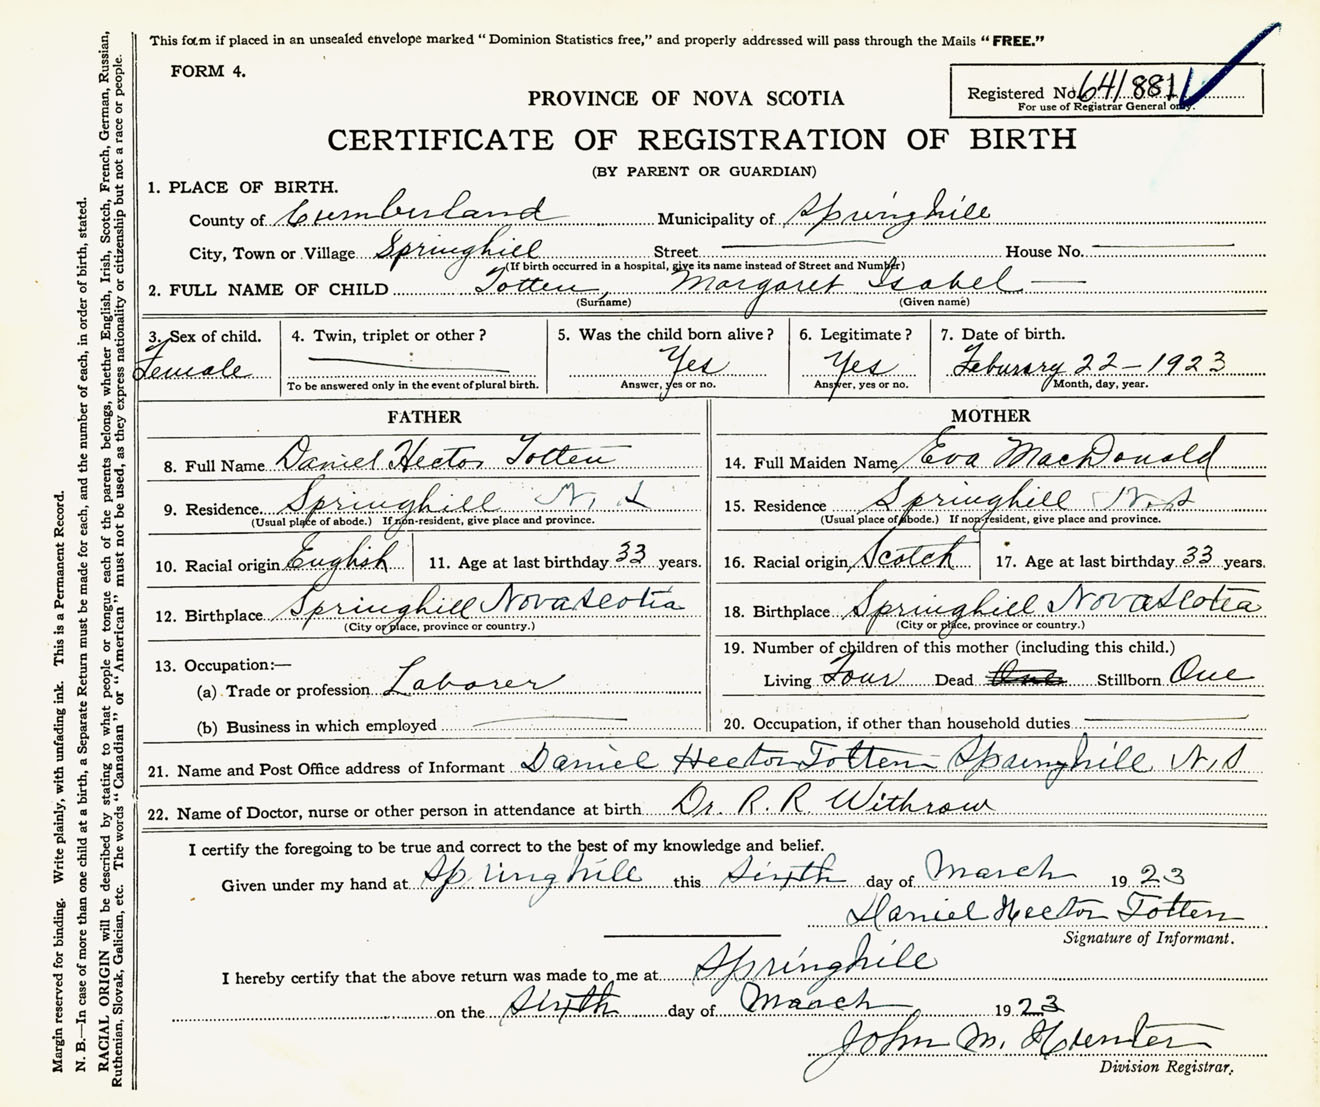 This form if placed in an unsealed envelope marked "Dominion Statistics free," and properly addressed will pass through the Mails "FREE."
FORM 4.
Registered No. 641881
For use of Registrar General only.
PROVINCE OF NOVA SCOTIA
CERTIFICATE OF REGISTRATION OF BIRTH
(BY PARENT OR GUARDIAN)
1. PLACE OF BIRTH.
County of Cumberland Municipality of Springhill
City, Town or Village Springhill Street House No.
(If birth occurred in a hospital, give its name instead of Street and Number)
2. FULL NAME OF CHILD Totten, Margaret Isabel
(Surname) (Given name)
3. Sex of child. 4. Twin, triplet or other? 5. Was the child born alive? 6. Legitimate? 7. Date of birth.
Female Yes Yes Feburary 22-1923
To be answered only in the event of plural birth. Answer, yes or no. Answer, yes or no. Month, day, year.
FATHER
8. Full Name Daniel Hector Totten
9. Residence Springhill N. S
(Usual place of abode.) If non-resident, give place and province.
10. Racial origin English 11. Age at last birthday 33 years.
12. Birthplace Springhill Nova Scotia
(City or place, province or country.)
13. Occupation:—
(a) Trade or profession Laborer
(b) Business in which employed
MOTHER
14. Full Maiden Name Eva MacDonald
15. Residence Springhill N. S
(Usual place of abode.) If non-resident, give place and province.
16. Racial origin Scotch 17. Age at last birthday 33 years.
18. Birthplace Springhill Nova Scotia
(City or place, province or country.)
19. Number of children of this mother (including this child.)
Living Four Dead One Stillborn One
20. Occupation, if other than household duties
21. Name and Post Office address of Informant Daniel Hector Totten Springhill N.S
22. Name of Doctor, nurse or other person in attendance at birth Dr. R. R. Withrow
I certify the foregoing to be true and correct to the best of my knowledge and belief.
Given under my hand at Springhill this Sixth day of March 1923
Daniel Hector Totten
Signature of Informant.
I hereby certify that the above return was made to me at Springhill
on the Sixth day of March 1923
John M. Hunter
Division Registrar.
Margin reserved for binding. Write plainly, with unfading ink. This is a Permanent Record.
N. B.—In case of more than one child at a birth, a Separate Return must be made for each, and the number of each, in order of birth, stated.
RACIAL ORIGIN will be described by stating to what people or tongue each of the parents belongs, whether English, Irish, Scotch, French, German, Russian,
Ruthenian, Slovak, Galician, etc. The words "Canadian" or "American" must not be used, as they express nationality or citizenship but not a race or people.